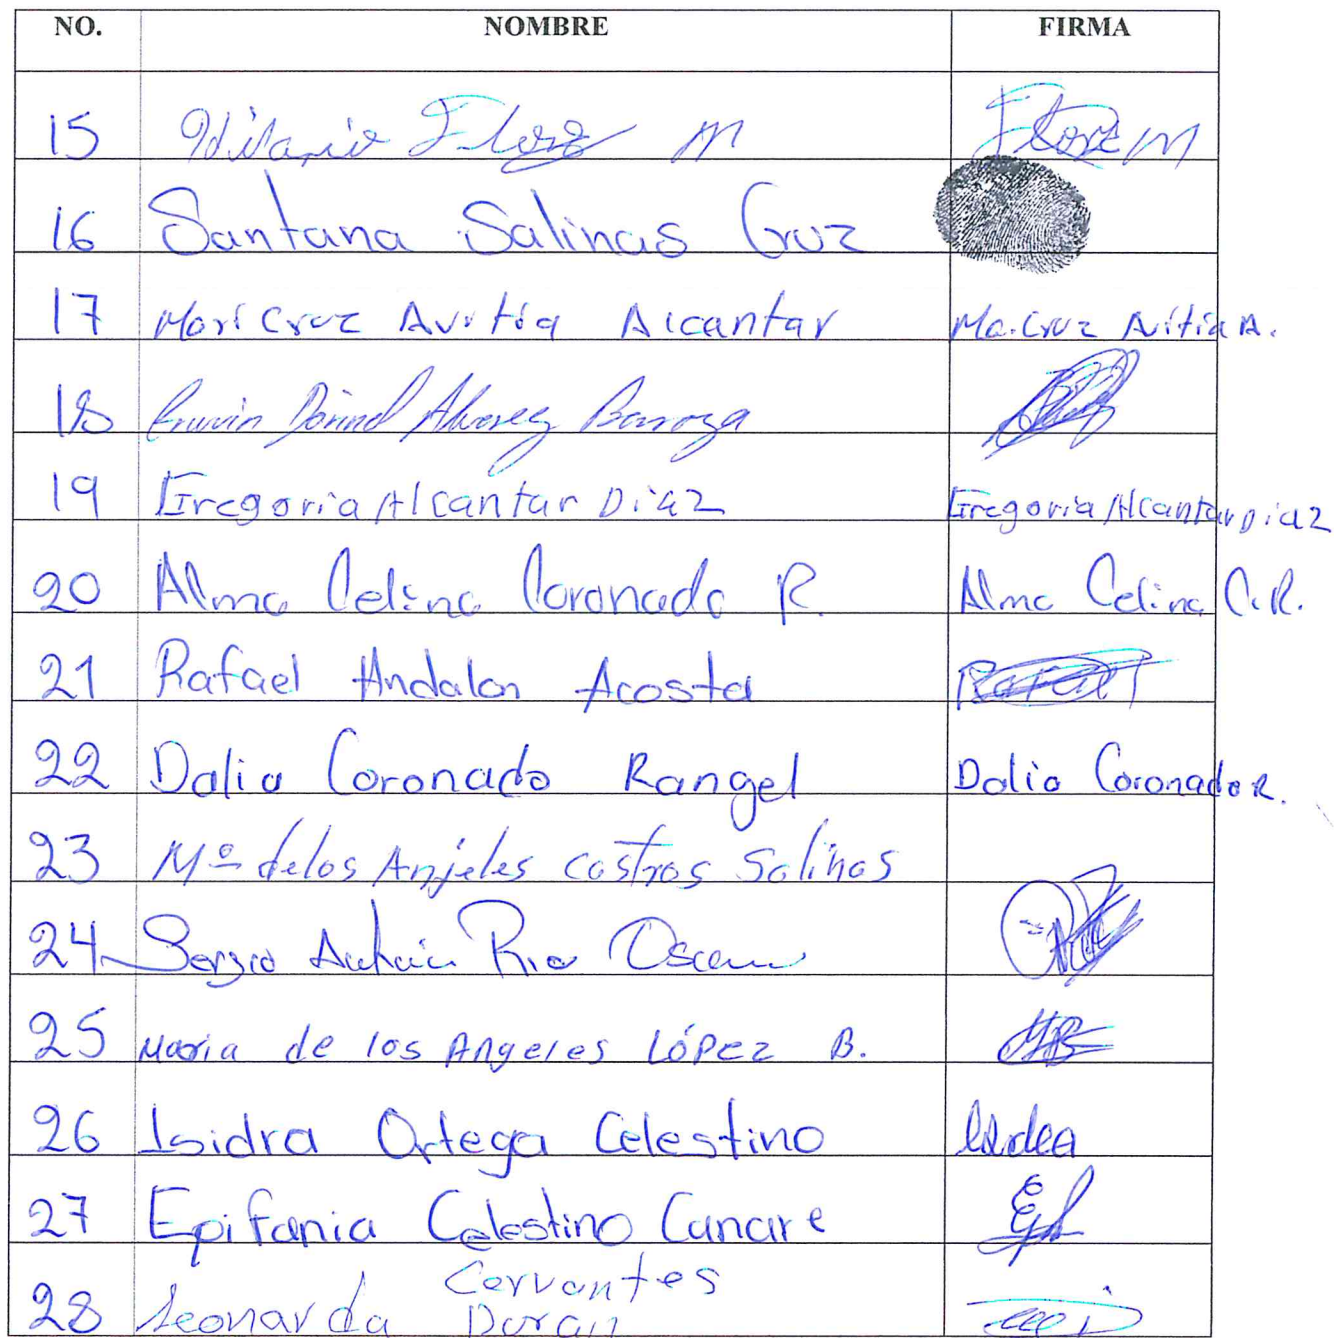 NO. NOMBRE FIRMA
15 Hilario Flores M Flores M
16 Santana Salinas Cruz
17 Mari Cruz Avitia Alcantar Ma. Cruz Avitia A.
18 Alvarez Barroza
19 Gregoria Alcantar Diaz Gregoria Alcantar Diaz
20 Alma Celina Coronado R. Alma Celina C.R.
21 Rafael Andalon Acosta Rafael
22 Dalia Coronado Rangel Dalia Coronado R.
23 Mª delos Anjeles castros Salinas
24 Sergio
25 Maria de los Angeles López B.
26 Isidra Ortega Celestino
27 Epifania Celestino Canare
28 Leonarda Cervantes
Duran